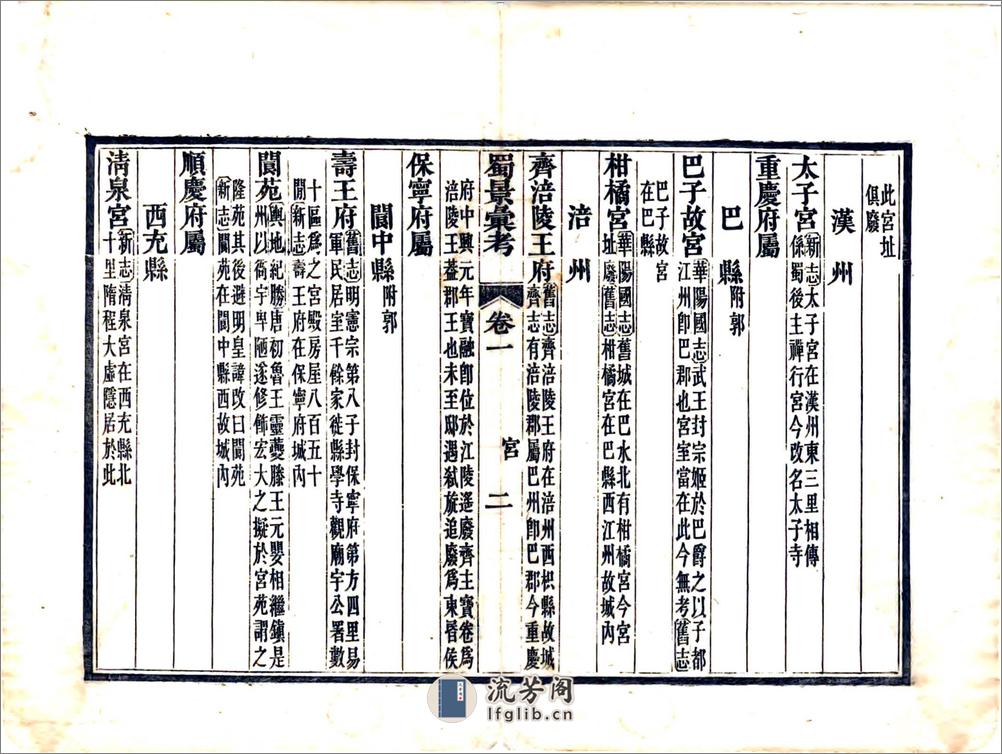 此宮址
俱廢
漢州
太子宮新志太子宮在漢州東三里相傳
係蜀後主禪行宮今改名太子寺
重慶府屬
巴縣附郭
巴子故宮華陽國志武王封宗姬於巴爵之以子都
江州卽巴郡也宮室當在此今無考舊志
巴子故宮
在巴縣
柑橘宮華陽國志舊城在巴水北有柑橘宮今宮
址廢舊志柑橘宮在巴縣西江州故城內
涪州
齊涪陵王府舊志齊涪陵王府在涪州西枳縣故城
齊志有涪陵郡屬巴州卽巴郡今重慶
蜀景彙考 卷一 宮 二
府中興元年寶融卽位於江陵遙廢齊主寶卷爲
涪陵王葢郡王也未至邸遇弒旋追廢爲東昏侯
保寧府屬
閬中縣附郭
壽王府舊志明憲宗第八子封保寧府第方四里易
軍民居室千餘家徙縣學寺觀廟宇公署數
十區爲之宮殿房屋八百五十
間新志壽王府在保寧府城內
閬苑輿地紀勝唐初魯王靈夔滕王元嬰相繼鎮是
州以衙宇卑陋遂修飾宏大之擬於宮苑謂之
隆苑其後避明皇諱改曰閬苑
新志閬苑在閬中縣西故城內
順慶府屬
西充縣
清泉宮新志清泉宮在西充縣北
十里隋程大虛隱居於此
流芳阁
lfglib.cn